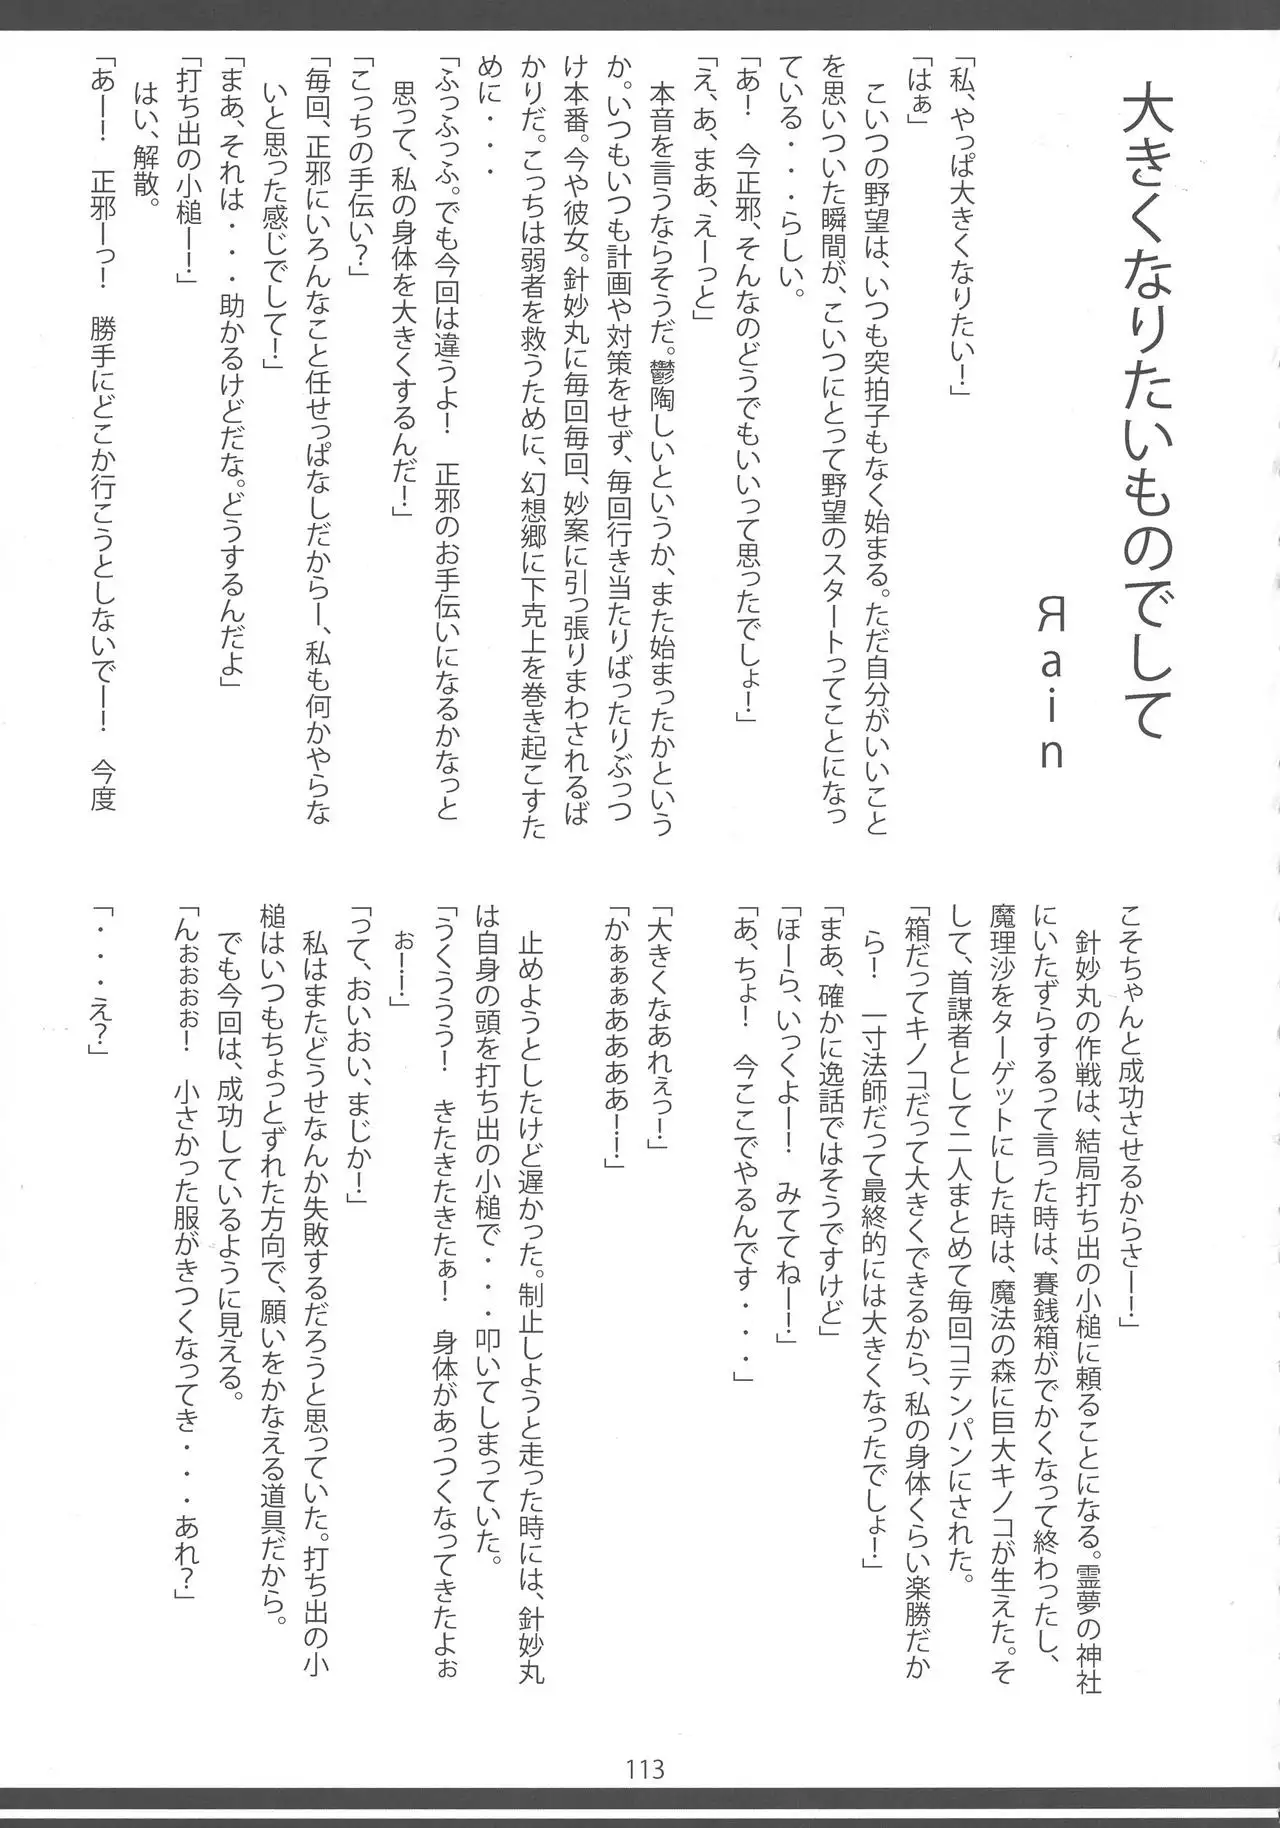 大きくなりたいものでして
Яain
「私、やっぱ大きくなりたい！」
「はぁ」
　こいつの野望は、いつも突拍子もなく始まる。ただ自分がいいこと
を思いついた瞬間が、こいつにとって野望のスタートってことになっ
ている・・・らしい。
「あ！　今正邪、そんなのどうでもいいって思ったでしょ！」
「え、あ、まあ、えーっと」
　本音を言うならそうだ。鬱陶しいというか、また始まったかという
か。いつもいつも計画や対策をせず、毎回行き当たりばったりぶっつ
け本番。今や彼女。針妙丸に毎回毎回、妙案に引っ張りまわされるば
かりだ。こっちは弱者を救うために、幻想郷に下克上を巻き起こすた
めに・・・
「ふっふっふ。でも今回は違うよ！　正邪のお手伝いになるかなっと
思って、私の身体を大きくするんだ！」
「こっちの手伝い？」
「毎回、正邪にいろんなこと任せっぱなしだからー、私も何かやらな
いと思った感じでして！」
「まあ、それは・・・助かるけどだな。どうするんだよ」
「打ち出の小槌ー！」
　はい、解散。
「あー！　正邪ーっ！　勝手にどこか行こうとしないでー！　今度
こそちゃんと成功させるからさー！」
　針妙丸の作戦は、結局打ち出の小槌に頼ることになる。霊夢の神社
にいたずらするって言った時は、賽銭箱がでかくなって終わったし、
魔理沙をターゲットにした時は、魔法の森に巨大キノコが生えた。そ
して、首謀者として二人まとめて毎回コテンパンにされた。
「箱だってキノコだって大きくできるから、私の身体くらい楽勝だか
ら！　一寸法師だって最終的には大きくなったでしょ！」
「まあ、確かに逸話ではそうですけど」
「ほーら、いっくよー！　みててねー！」
「あ、ちょ！　今ここでやるんです・・・」
「大きくなあれぇっ！」
「かぁぁぁああああ！！」
　止めようとしたけど遅かった。制止しようと走った時には、針妙丸
は自身の頭を打ち出の小槌で・・・叩いてしまっていた。
「うくううう！　きたきたきたぁ！　身体があっつくなってきたよぉ
ぉー！」
「って、おいおい、まじか！」
　私はまたどうせなんか失敗するだろうと思っていた。打ち出の小
槌はいつもちょっとずれた方向で、願いをかなえる道具だから。
　でも今回は、成功しているように見える。
「んぉぉぉぉ！　小さかった服がきつくなってき・・・あれ？」
「・・・え？」
113